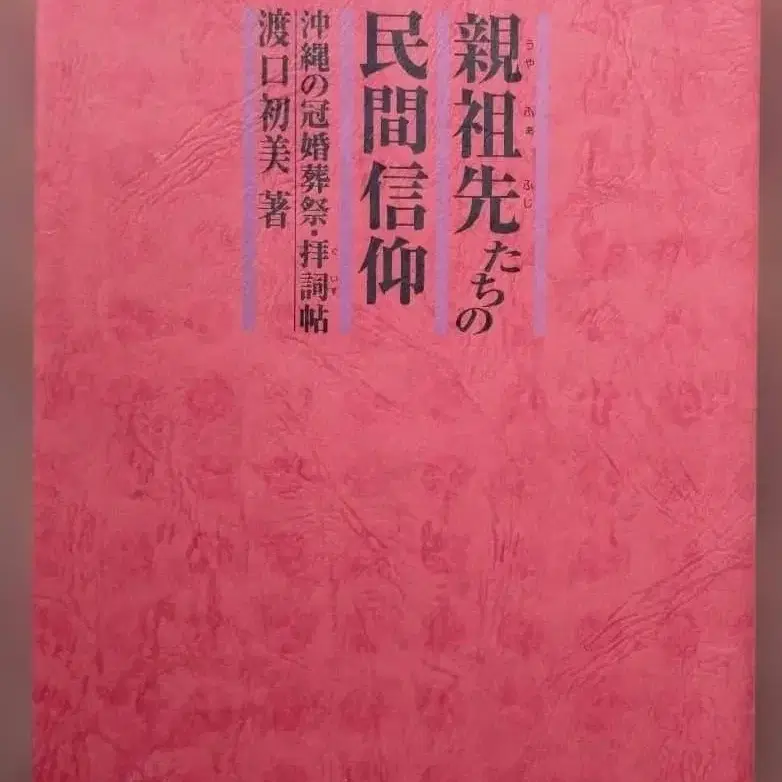 親祖先たちの
うや ふぁ ふじ
民間信仰
沖縄の冠婚葬祭・拝詞帖
ぐいす
渡口初美 著